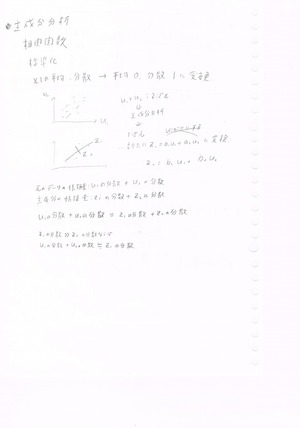 ●主成分分析
相関関数
標準化
xの平均、分散 → 平均0、分散1に変換
u₂
u₁
u₁、u₂
↓
主成分分析
↓
z₁
z₂
z₁ = a₁u₁ + a₂u₂ に変換
z₂ = b₁u₁ + b₂u₂
元のデータの情報量：u₁の分散 + u₂の分散
主成分の情報量：z₁の分散 + z₂の分散
u₁の分散 + u₂の分散 = z₁の分散 + z₂の分散
z₁の分散 ≫ z₂の分散ならば
u₁の分散 + u₂の分散 ≒ z₁の分散